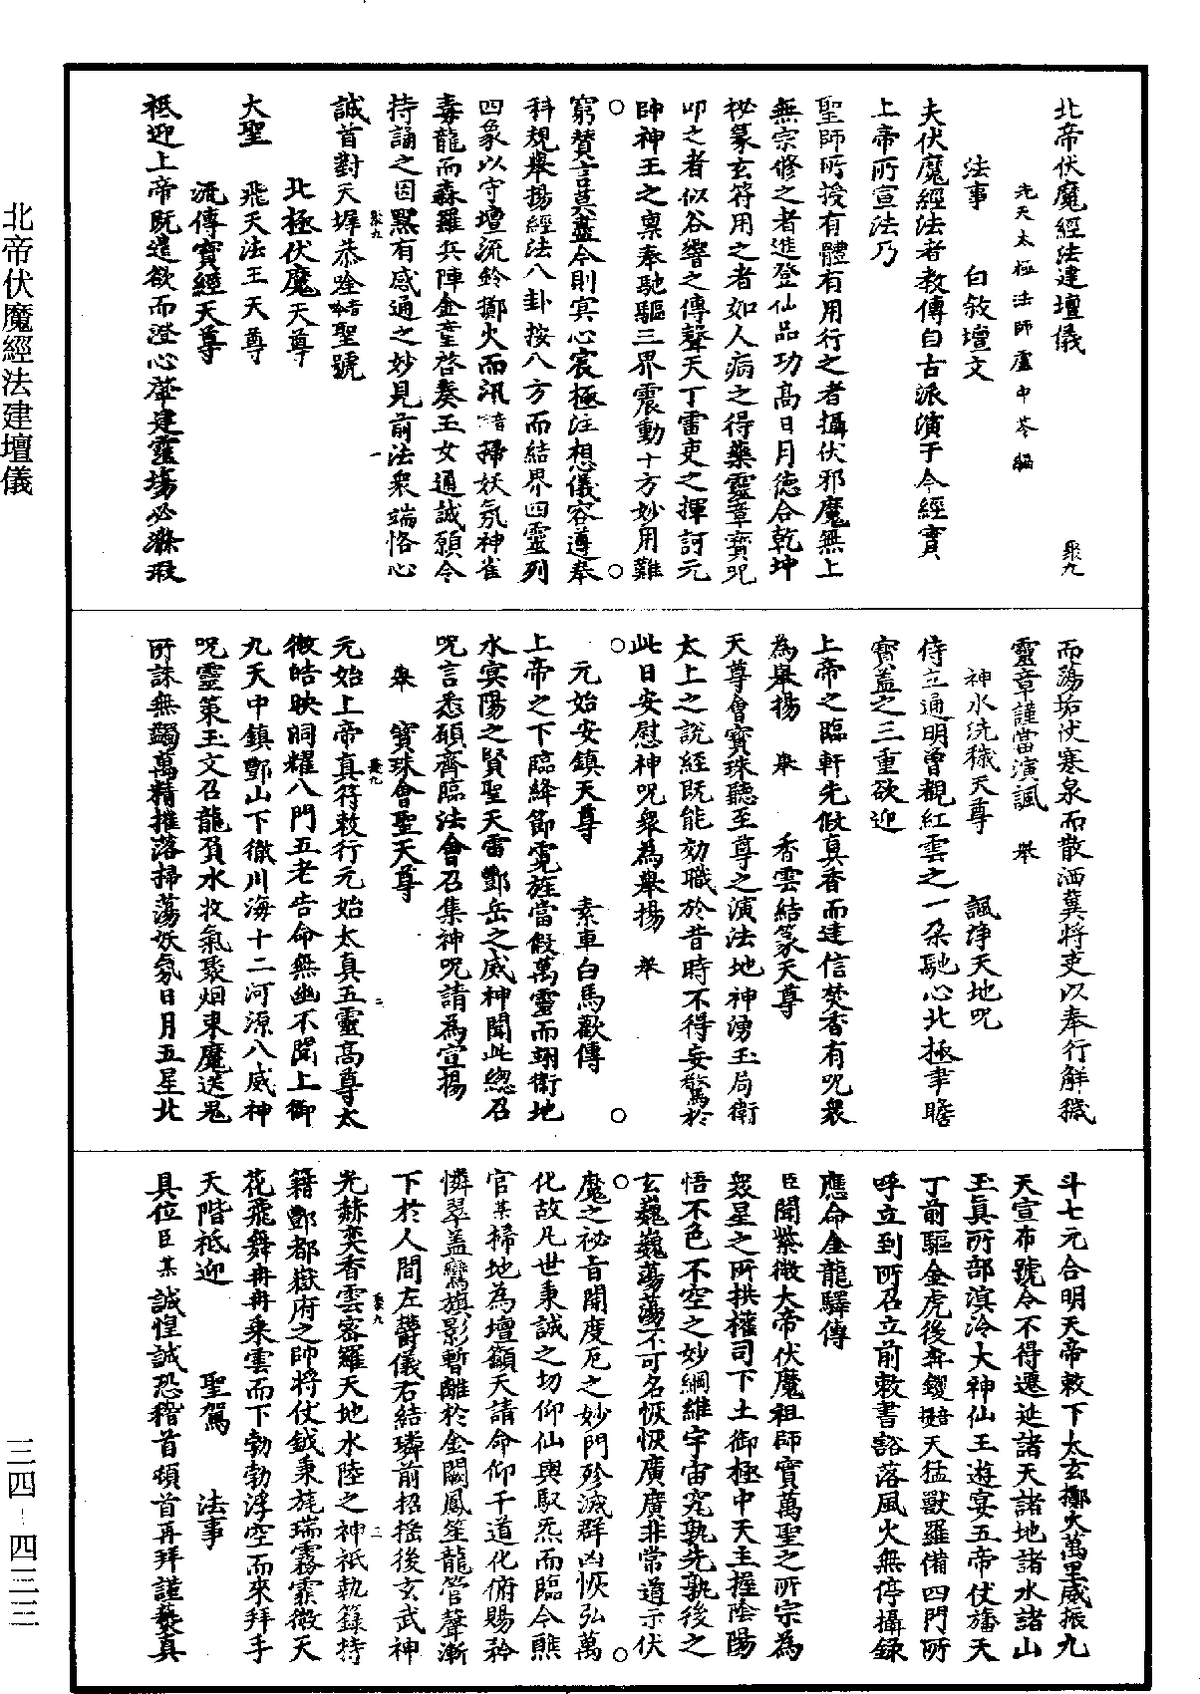 北帝伏魔經法建壇儀
聚九
先天太極法師盧中苓編
法事　白敘壇文
夫伏魔經法者教傳自古派演于今經實
上帝所宣法乃
聖師所授有體有用行之者攝伏邪魔無上
無宗修之者進登仙品功高日月德合乾坤
祕篆玄符用之者如人病之得藥靈章寶呪
叩之者似谷響之傳聲天丁雷吏之揮訶元
帥神王之稟奉馳驅三界震動十方妙用難
窮贊言莫盡今則冥心宸極注想儀容遵奉
科規舉揚經法八卦按八方而結界四靈列
四象以守壇流鈴擲火而汛掃妖氛神雀
毒龍而森羅兵陣金童啓奏玉女通誠願令
持誦之因黙有感通之妙見前法衆端恪心
聚九　一
誠首對天墀恭唪聖號
北極伏魔天尊
大聖　飛天法王天尊
流傳寶經天尊
祗迎上帝既遣欲而澄心肇建靈場必滌瑕
而蕩垢仗寒泉而散洒冀將吏以奉行解穢
靈章謹當演諷　舉
神水洗穢天尊　諷淨天地呪
侍立通明曾觀紅雲之一朶馳心北極聿瞻
寶盖之三重欲迎
上帝之臨軒先倣真香而達信焚香有呪衆
為舉揚　舉　香雲結篆天尊
天尊會寶珠聽至尊之演法地神湧玉局衛
太上之說經既能効職於昔時不得妄驚於
此日安慰神呪衆為舉揚　舉
元始安鎮天尊　素車白馬歡傳
上帝之下臨絳節霓旌當假萬靈而翊衛地
水冥陽之賢聖天雷酆岳之威神聞此總召
呪言悉願齊臨法會召集神呪請為宣揚
舉　寶珠會聖天尊
聚九　二
元始上帝真符敕行元始太真五靈高尊太
微皓映洞耀八門五老告命無幽不聞上御
九天中鎮酆山下徹川海十二河源八威神
呪靈策玉文召龍負水收氣聚烟束魔送鬼
所誅無蠲萬精摧落掃蕩妖氛日月五星北
斗七元合明天帝敕下太玄擲火萬里威振九
天宣布號令不得遷延諸天諸地諸水諸山
玉真所部溟泠大神仙王遊宴五帝仗旛天
丁前驅金虎後奔鑁天猛獸羅備四門所
呼立到所召立前敕書豁落風火無停攝録
應命金龍驛傳
臣聞紫微大帝伏魔祖師實萬聖之所宗為
衆星之所拱權司下土御極中天主握陰陽
悟不色不空之妙綱維宇宙究孰先孰後之
玄巍巍蕩蕩不可名恢恢廣廣非常道示伏
魔之祕旨開度厄之妙門殄滅群凶恢弘萬
化故凡世秉誠之切仰仙輿馭炁而臨今醮
官某掃地為壇籲天請命仰千道化俯賜矜
憐翠盖鸞旗影暫離於金闕鳳笙龍管聲漸
下於人間左欝儀右結璘前招揺後玄武神
聚九　三
光赫奕香雲密羅天地水陸之神祇執籙持
籍酆都嶽府之帥將仗鉞秉旄瑞霧霏微天
花飛舞冉冉乘雲而下勃勃浮空而來拜手
天階祗迎　聖駕　法事
具位臣某誠惶誠恐稽首頓首再拜謹爇真
北帝伏魔經法建壇儀
三四－四三三